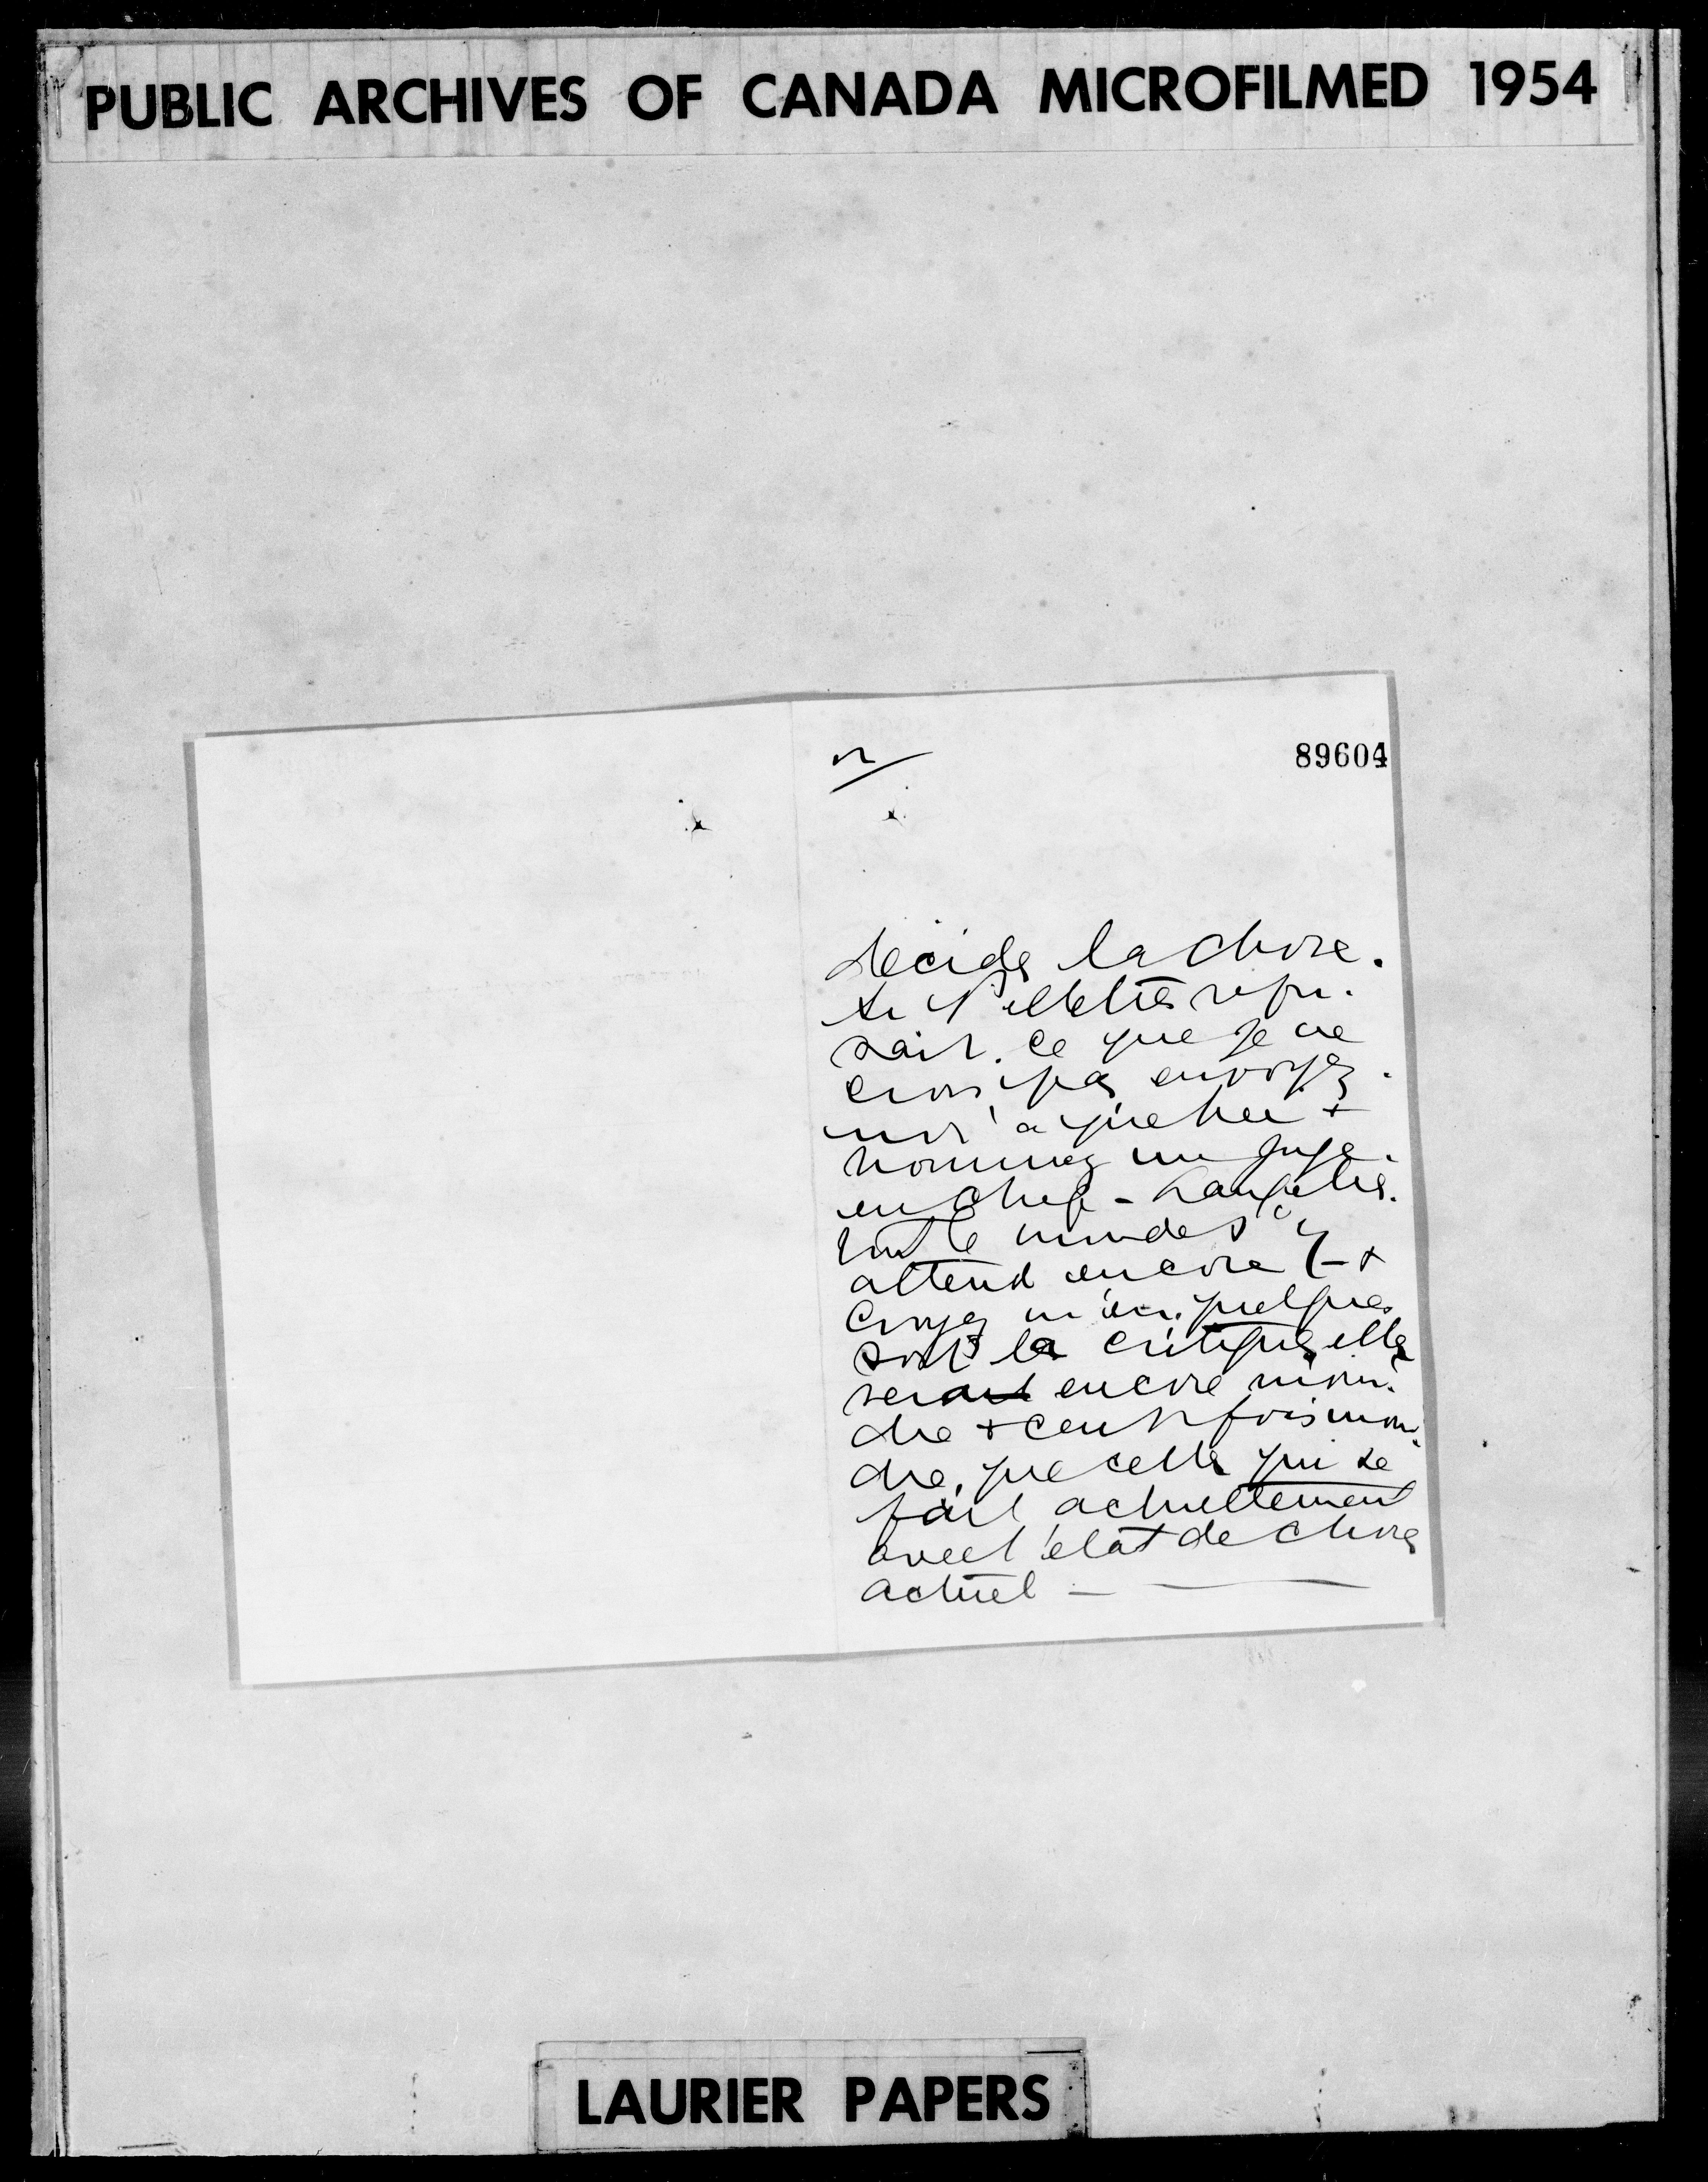 PUBLIC ARCHIVES OF CANADA MICROFILMED 1954
2/
89604
decidez la chose.
Si Pelletier refu-
sait. ce que je ne
crois pas envoyez-
moi à Quebec +
nommez un juge-
en chef - Langelier.
tout le monde s'y
attend encore - +
croyez m'en. quelque
soit la critique elle
serait encore moin-
dre + cent fois moin-
dre. que celle qui se
fait actuellement
avec l'etat de chose
actuel -
LAURIER PAPERS